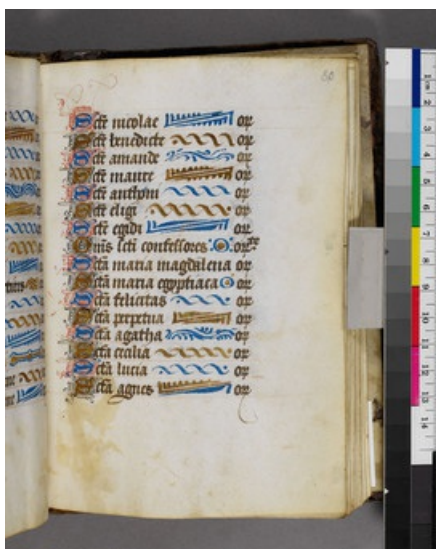 80
Scte nicolae or
Scte benedicte or
Scte amande or
Scte maure or
Scte anthoni or
Scte eligi or
Scte egidi or
Omis scti confessores or
Scta maria magdalena or
Scta maria egyptiaca or
Scta felicitas or
Scta perpetua or
Scta agatha or
Scta cecilia or
Scta lucia or
Scta agnes or